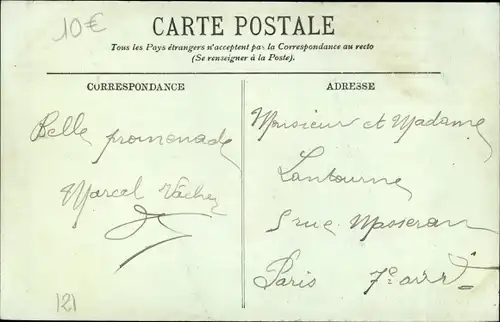 10€
CARTE POSTALE
Tous les Pays étrangers n'acceptent pas la Correspondance au recto
(Se renseigner à la Poste).
CORRESPONDANCE
Belle promenade
Marcel Vacher
121
ADRESSE
Monsieur et Madame
Lantourne
5 rue Masseran
Paris 7e arrt